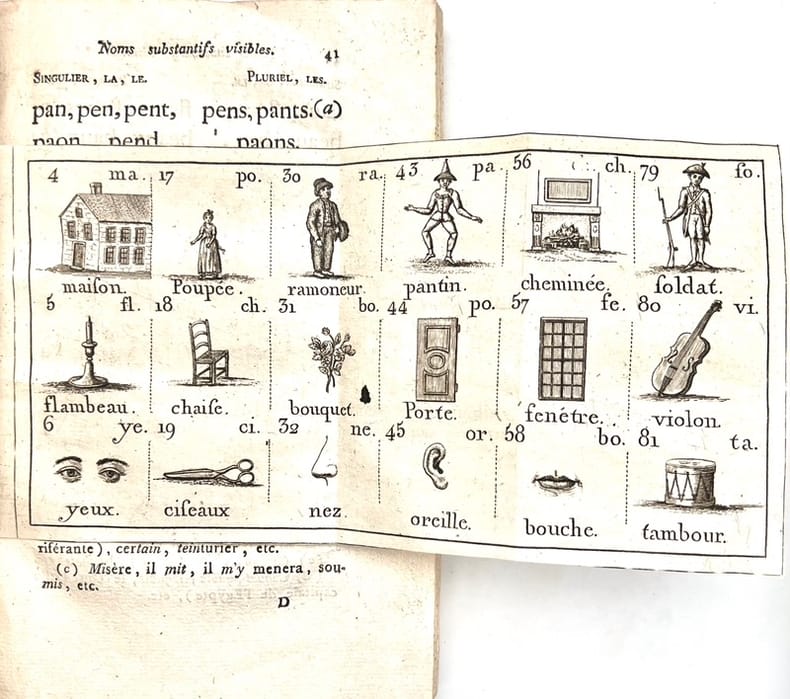 Noms substantifs visibles. 41
SINGULIER, LA, LE. PLURIEL, LES.
pan, pen, pent, pens, pants.(a)
paon pend paons.
4 ma. 17 po. 30 ra. 43 pa. 56 ch. 79 ſo.
maiſon. Poupée. ramoneur. pantin. cheminée. ſoldat.
5 fl. 18 ch. 31 bo. 44 po. 57 fe. 80 vi.
flambeau. chaiſe. bouquet. Porte. fenétre. violon.
6 ye. 19 ci. 32 ne. 45 or. 58 bo. 81 ta.
yeux. ciſeaux nez. oreille. bouche. tambour.
riférante), certain, teinturier, etc.
(c) Misère, il mit, il m'y menera, sou-
mis, etc.
D